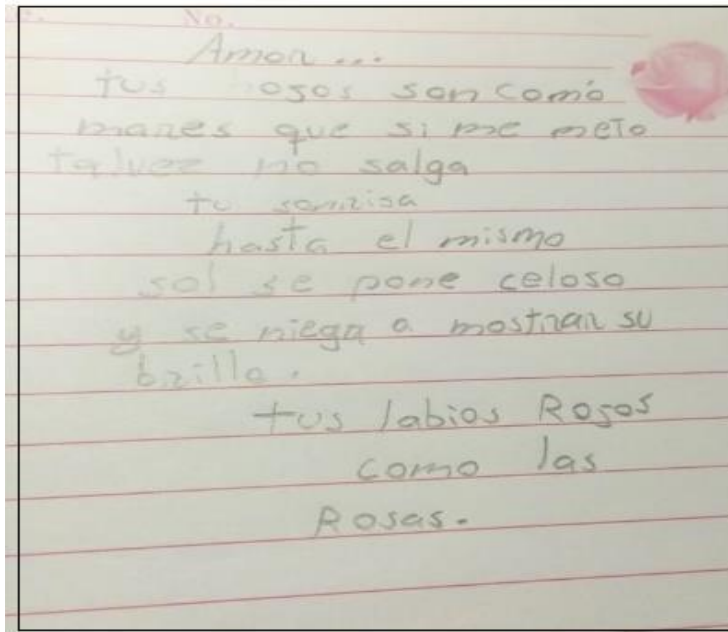 No.
Amor...
tus ojos son como
mares que si me meto
talvez no salga
tu sonrisa
hasta el mismo
sol se pone celoso
y se niega a mostrar su
brillo.
tus labios Rojos
como las
Rosas.